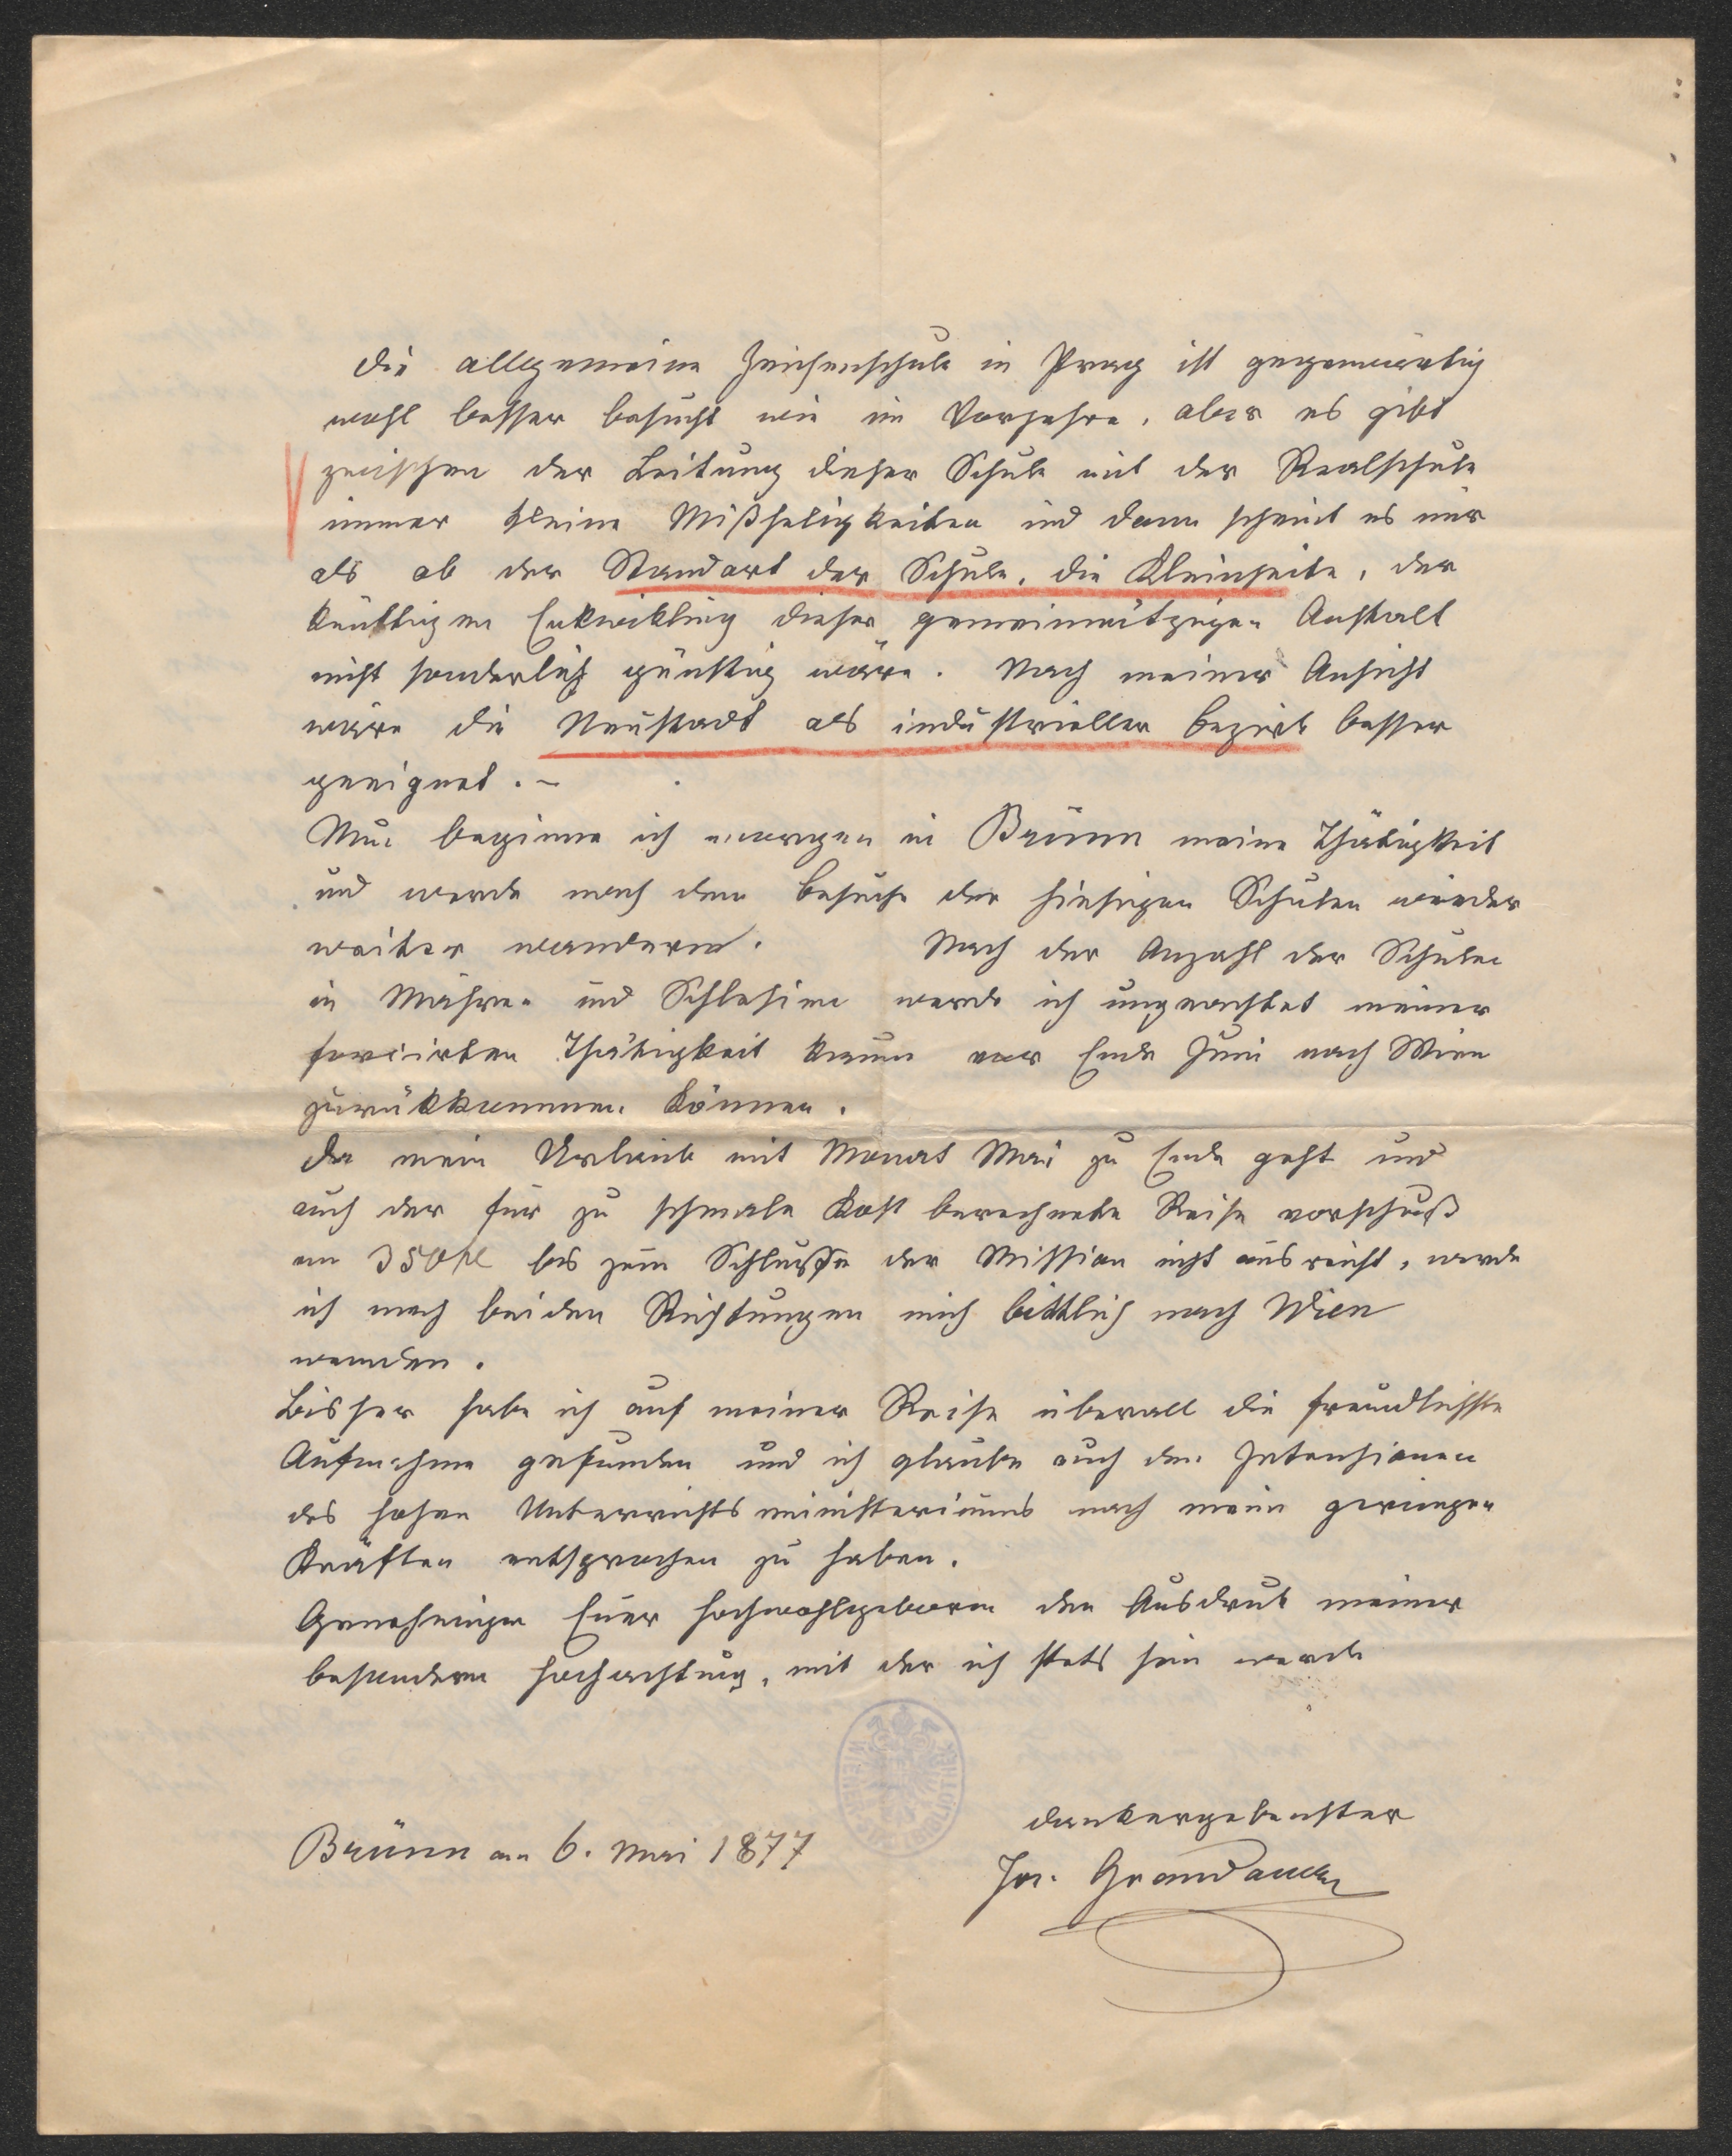 Die allgemeine Zeichenschule in Prag ist gegenwärtig
wohl besser besucht wie im Vorjahre, aber es gibt
zwischen der Leitung dieser Schule mit der Realschule
immer kleine Mißheligkeiten und dann scheint es mir
als ob der Standort der Schule, die Kleinseite, der
künftigen Entwicklung dieser gemeinnützigen Anstalt
nicht sonderlich günstig wäre. Nach meiner Ansicht
wäre die Neustadt als industrieller Bezirk besser
geeignet. –
Nun beginne ich morgen in Brünn meine Thätigkeit
und werde nach dem Besuche der hiesigen Schulen wieder
weiter wandern. Nach der Anzahl der Schulen
in Mähren und Schlesien werde ich ungeachtet meiner
forcirten Thätigkeit kaum vor Ende Juni nach Wien
zurükkommen können.
Da mein Urlaub mit Monat Mai zu Ende geht und
auch der für zu schmale Kost berechnete Reise vorschuß
von 350 fl bis zum Schluße der Mission nicht ausreicht, werde
ich nach beiden Richtungen mich bittlich nach Wien
wenden.
Bisher habe ich auf meiner Reise überall die freundlichste
Aufnahme gefunden und ich glaube auch den Intensionen
des hohen Unterrichtsministeriums nach mein geringen
Kräften entsprochen zu haben.
Genehmigen Euer Hochwohlgeboren den Ausdruk meiner
besondern Hochachtung, mit der ich stets sein werde
dankergebenster
Brünn am 6. Mai 1877
Jos. Grandauer